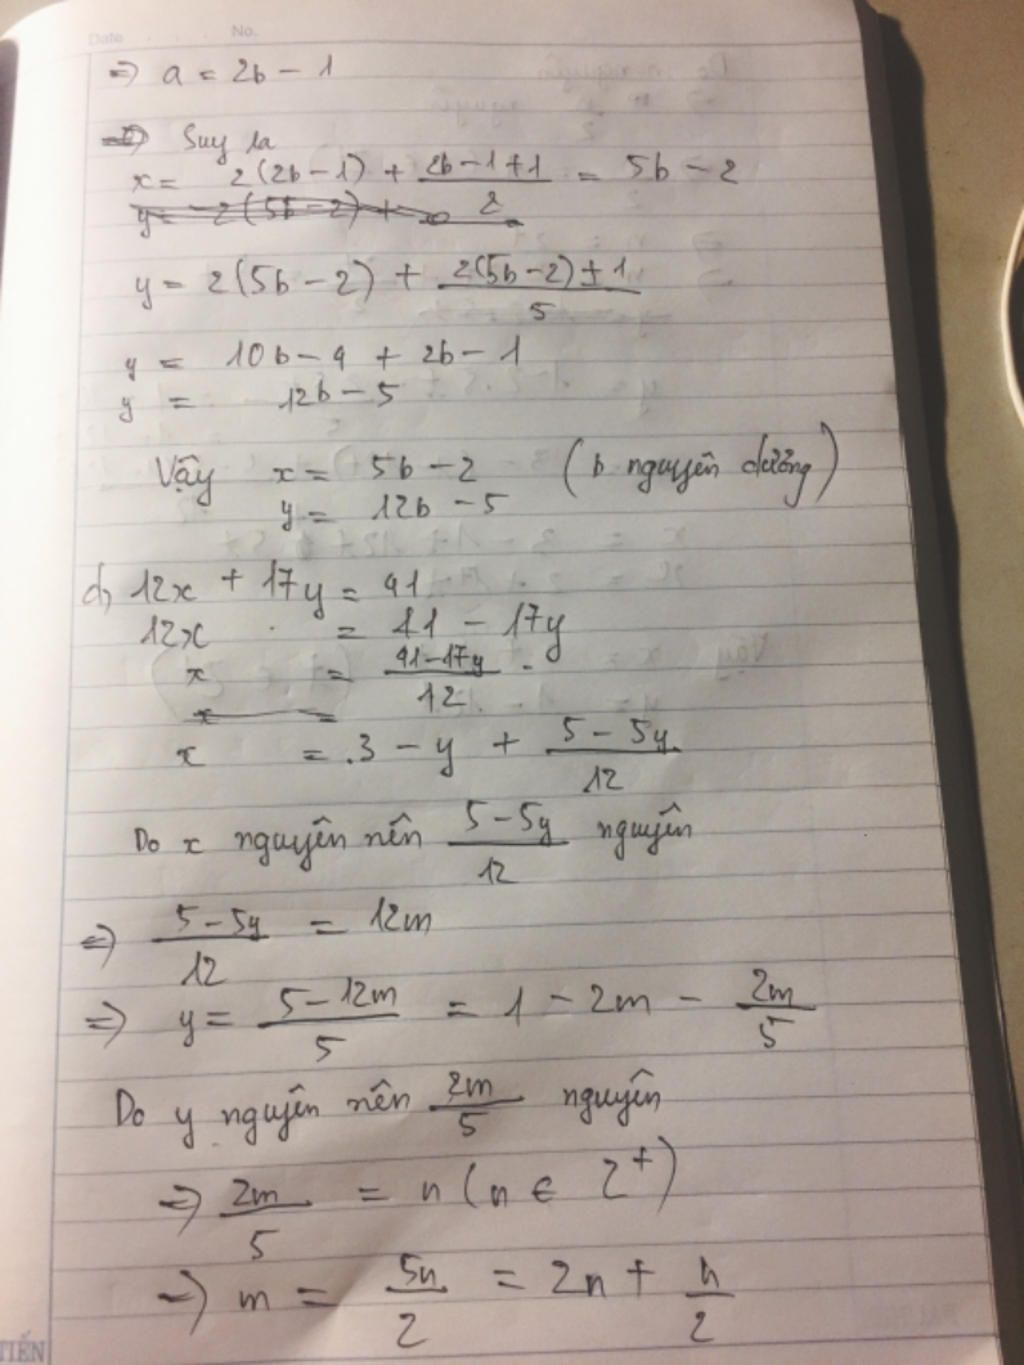 Date No.
=> a = 2b - 1
=> Suy ra
x = 2(2b - 1) + (2b - 1 + 1)/2 = 5b - 2
y = 2(5b - 2) + (2(5b - 2) ± 1)/5
y = 10b - 4 + 2b - 1
y = 12b - 5
Vậy x = 5b - 2 (b nguyên dương)
y = 12b - 5
d, 12x + 17y = 41
12x = 41 - 17y
x = (41 - 17y)/12
x = 3 - y + (5 - 5y)/12
Do x nguyên nên (5 - 5y)/12 nguyên
=> (5 - 5y)/12 = 12m
=> y = (5 - 12m)/5 = 1 - 2m - 2m/5
Do y nguyên nên 2m/5 nguyên
=> 2m/5 = n (n ∈ Z⁺)
=> m = 5n/2 = 2n + n/2
TIẾN